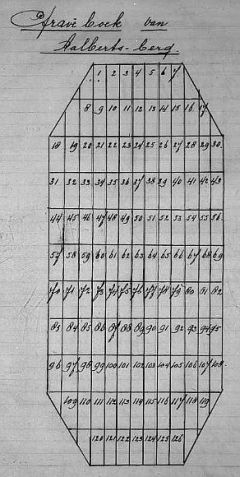 Graf boek van
Aalberts-berg.
1 2 3 4 5 6 7
8 9 10 11 12 13 14 15 16 17
18 19 20 21 22 23 24 25 26 27 28 29 30
31 32 33 34 35 36 37 38 39 40 41 42 43
44 45 46 47 48 49 50 51 52 53 54 55 56
57 58 59 60 61 62 63 64 65 66 67 68 69
70 71 72 73 74 75 76 77 78 79 80 81 82
83 84 85 86 87 88 89 90 91 92 93 94 95
96 97 98 99 100 101 102 103 104 105 106 107 108
109 110 111 112 113 114 115 116 117 118 119
120 121 122 123 124 125 126